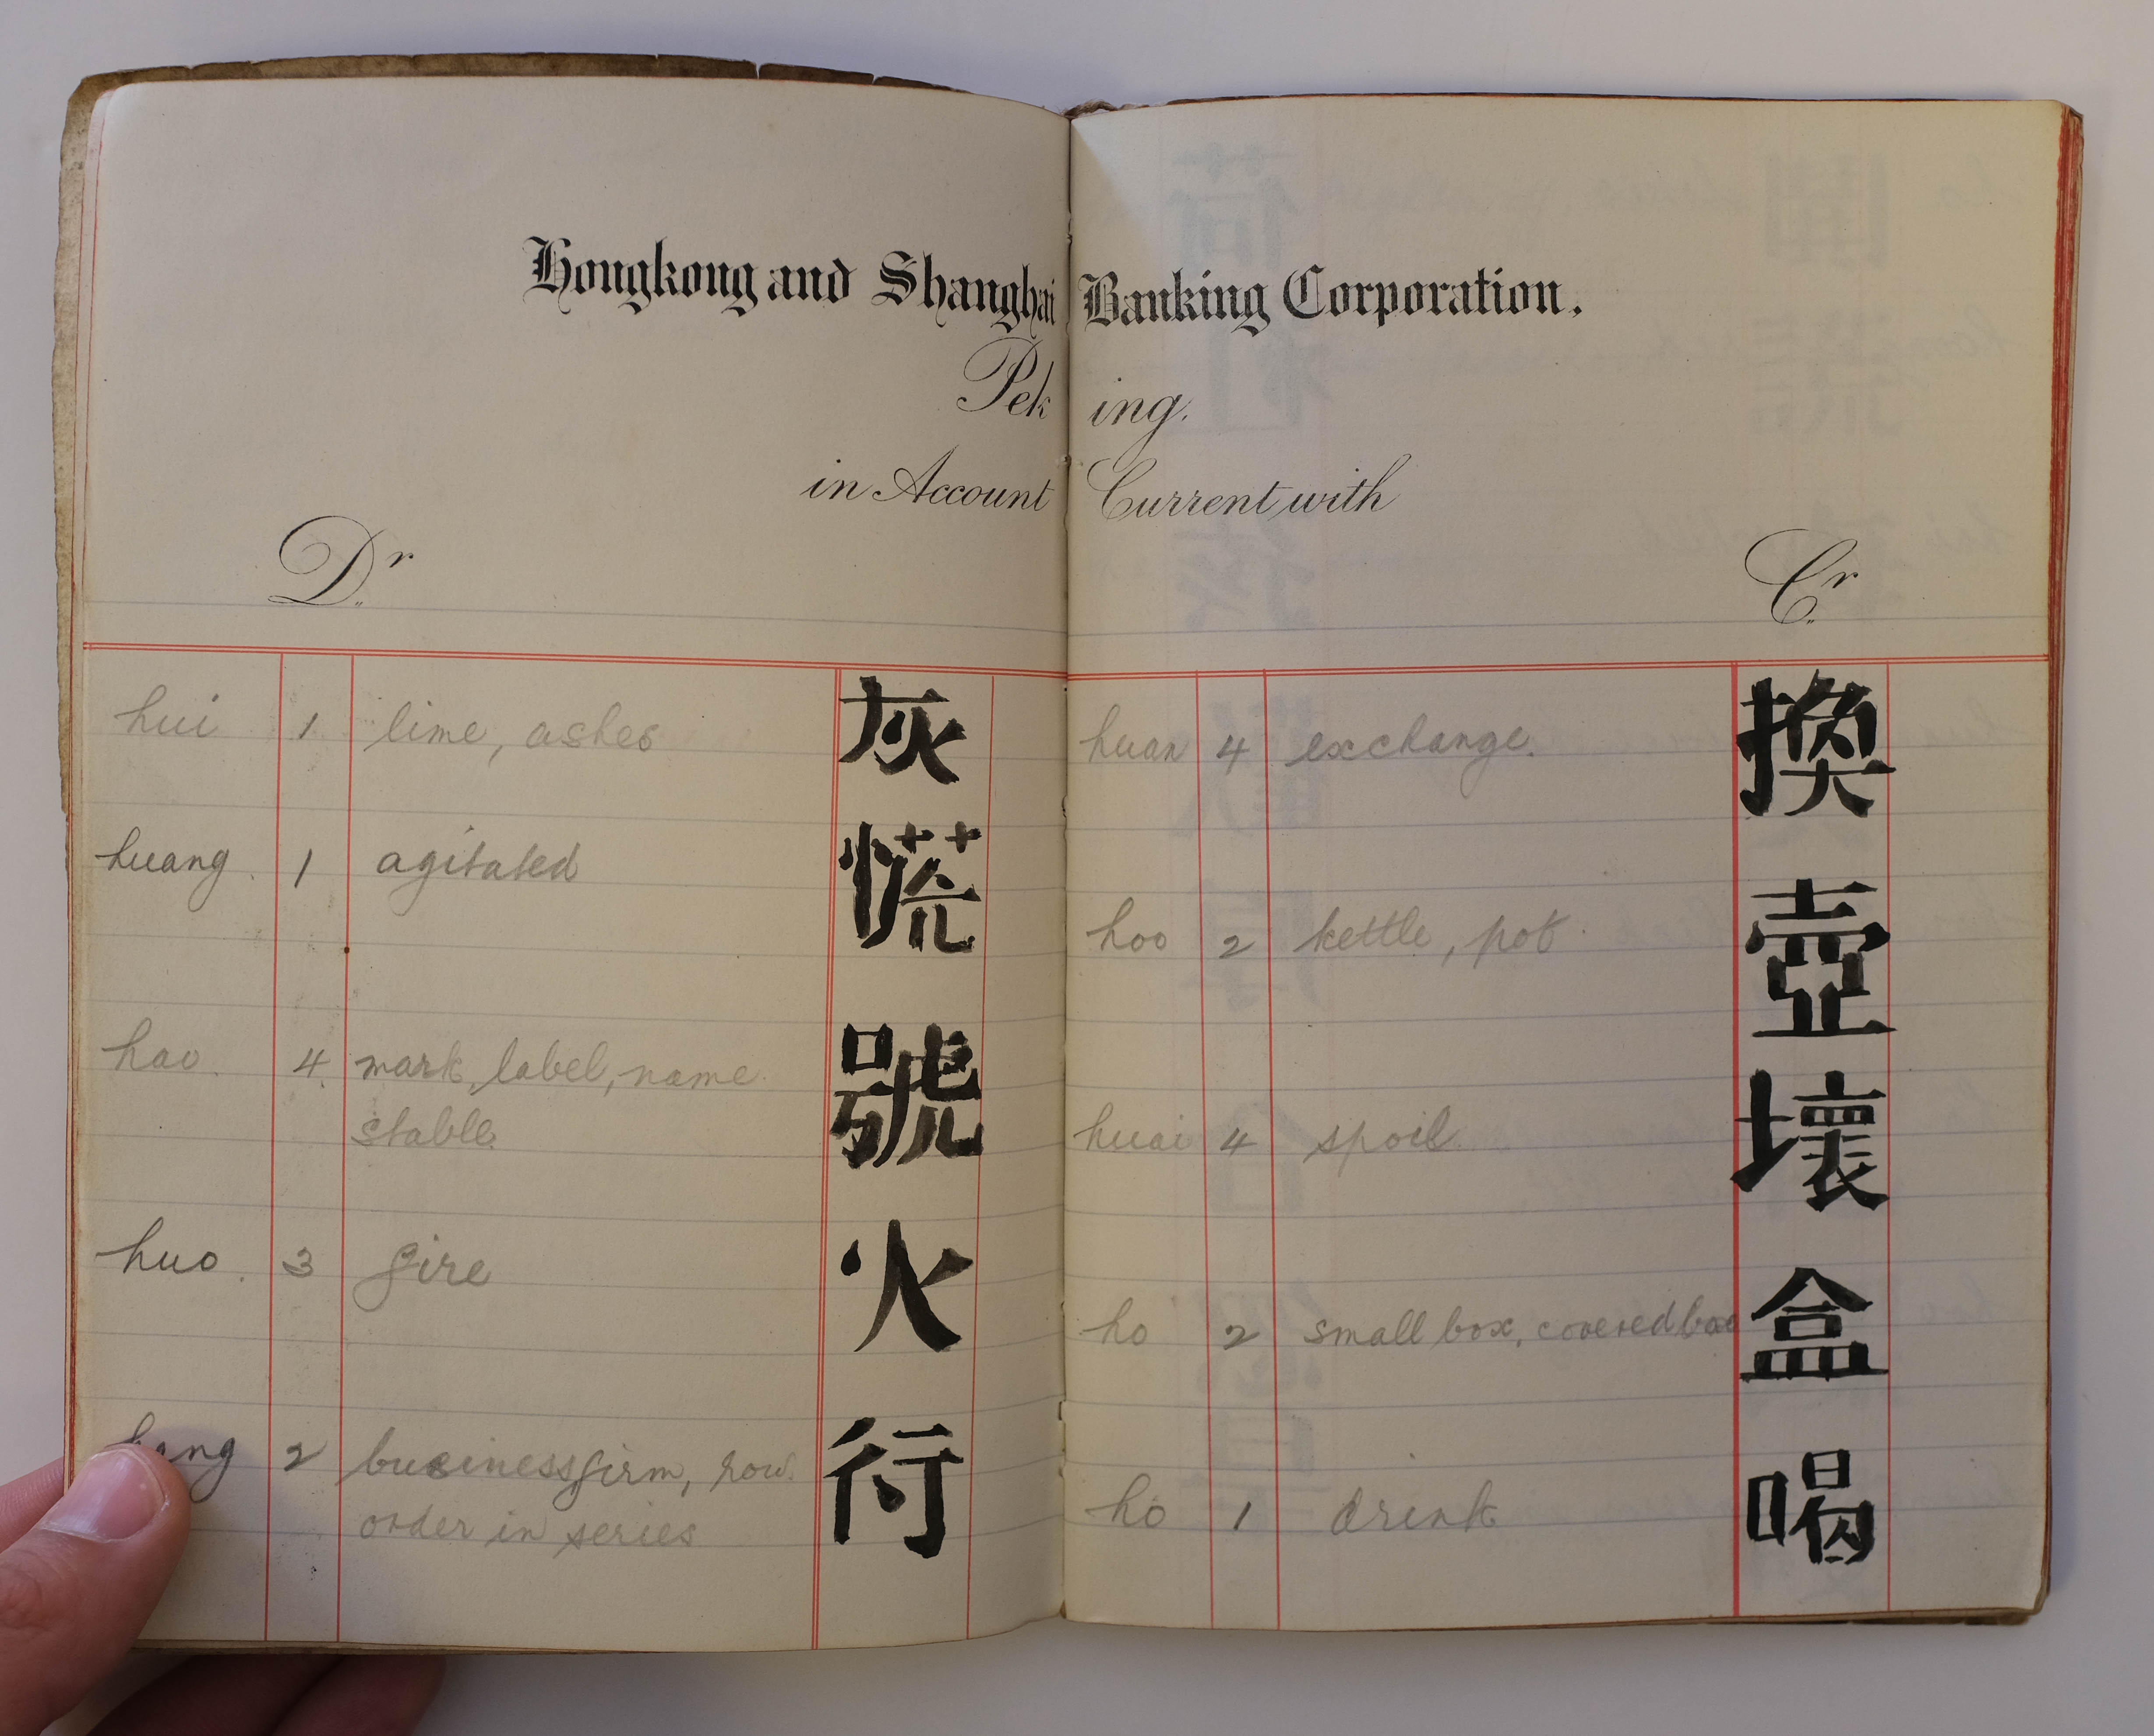 Hongkong and Shanghai Banking Corporation.
Peking.
in Account Current with
Dr
Cr
hui 1 lime, ashes 灰
huang. 1 agitated 慌
hao. 4. mark, label, name
stable. 號
huo. 3 fire 火
hang 2 business firm, row.
order in series 行
huan 4 exchange. 換
hoo 2 kettle, pot 壺
huai 4 spoil. 壞
ho 2 small box, covered box 盒
ho 1 drink 喝